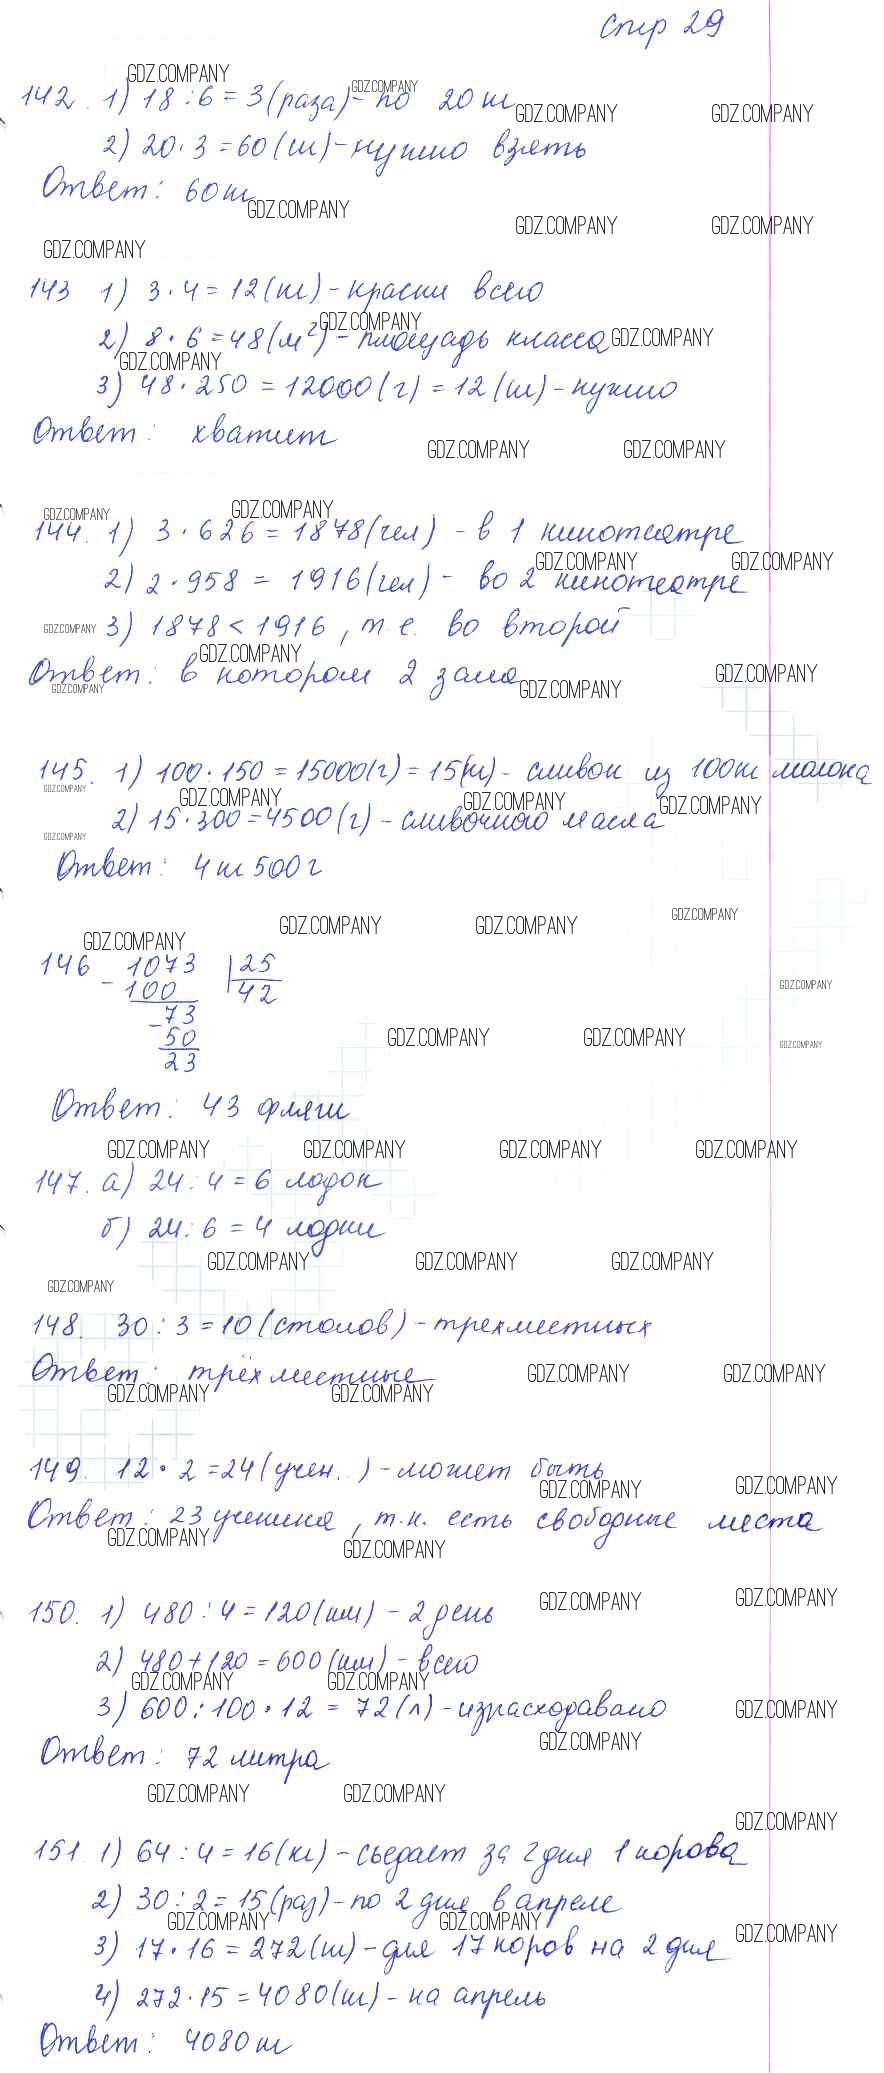 стр 29
142. 1) 18 : 6 = 3 (раза) - по 20 кг
2) 20 · 3 = 60 (кг) - нужно взять
Ответ: 60 кг
143 1) 3 · 4 = 12 (кг) - краски всего
2) 8 · 6 = 48 (м²) - площадь класса
3) 48 · 250 = 12000 (г) = 12 (кг) - нужно
Ответ: хватит
144. 1) 3 · 626 = 1878 (чел) - в 1 кинотеатре
2) 2 · 958 = 1916 (чел) - во 2 кинотеатре
3) 1878 < 1916, т.е. во второй
Ответ: в котором 2 зала
145. 1) 100 · 150 = 15000 (г) = 15 (кг) - сливок из 100 кг молока
2) 15 · 300 = 4500 (г) - сливочного масла
Ответ: 4 кг 500 г
146 - 1073 | 25
100 42
- 73
50
23
Ответ: 43 фляги
147. а) 24 : 4 = 6 лодок
б) 24 : 6 = 4 лодки
148. 30 : 3 = 10 (столов) - трехместных
Ответ: трёхместные
149. 12 · 2 = 24 (учен.) - может быть
Ответ: 23 ученика, т.к. есть свободные места
150. 1) 480 : 4 = 120 (км) - 2 день
2) 480 + 120 = 600 (км) - всего
3) 600 : 100 · 12 = 72 (л) - израсходавано
Ответ: 72 литра
151. 1) 64 : 4 = 16 (кг) - съедает за 2 дня 1 корова
2) 30 : 2 = 15 (раз) - по 2 дня в апреле
3) 17 · 16 = 272 (кг) - для 17 коров на 2 дня
4) 272 · 15 = 4080 (кг) - на апрель
Ответ: 4080 кг
GDZ.COMPANY